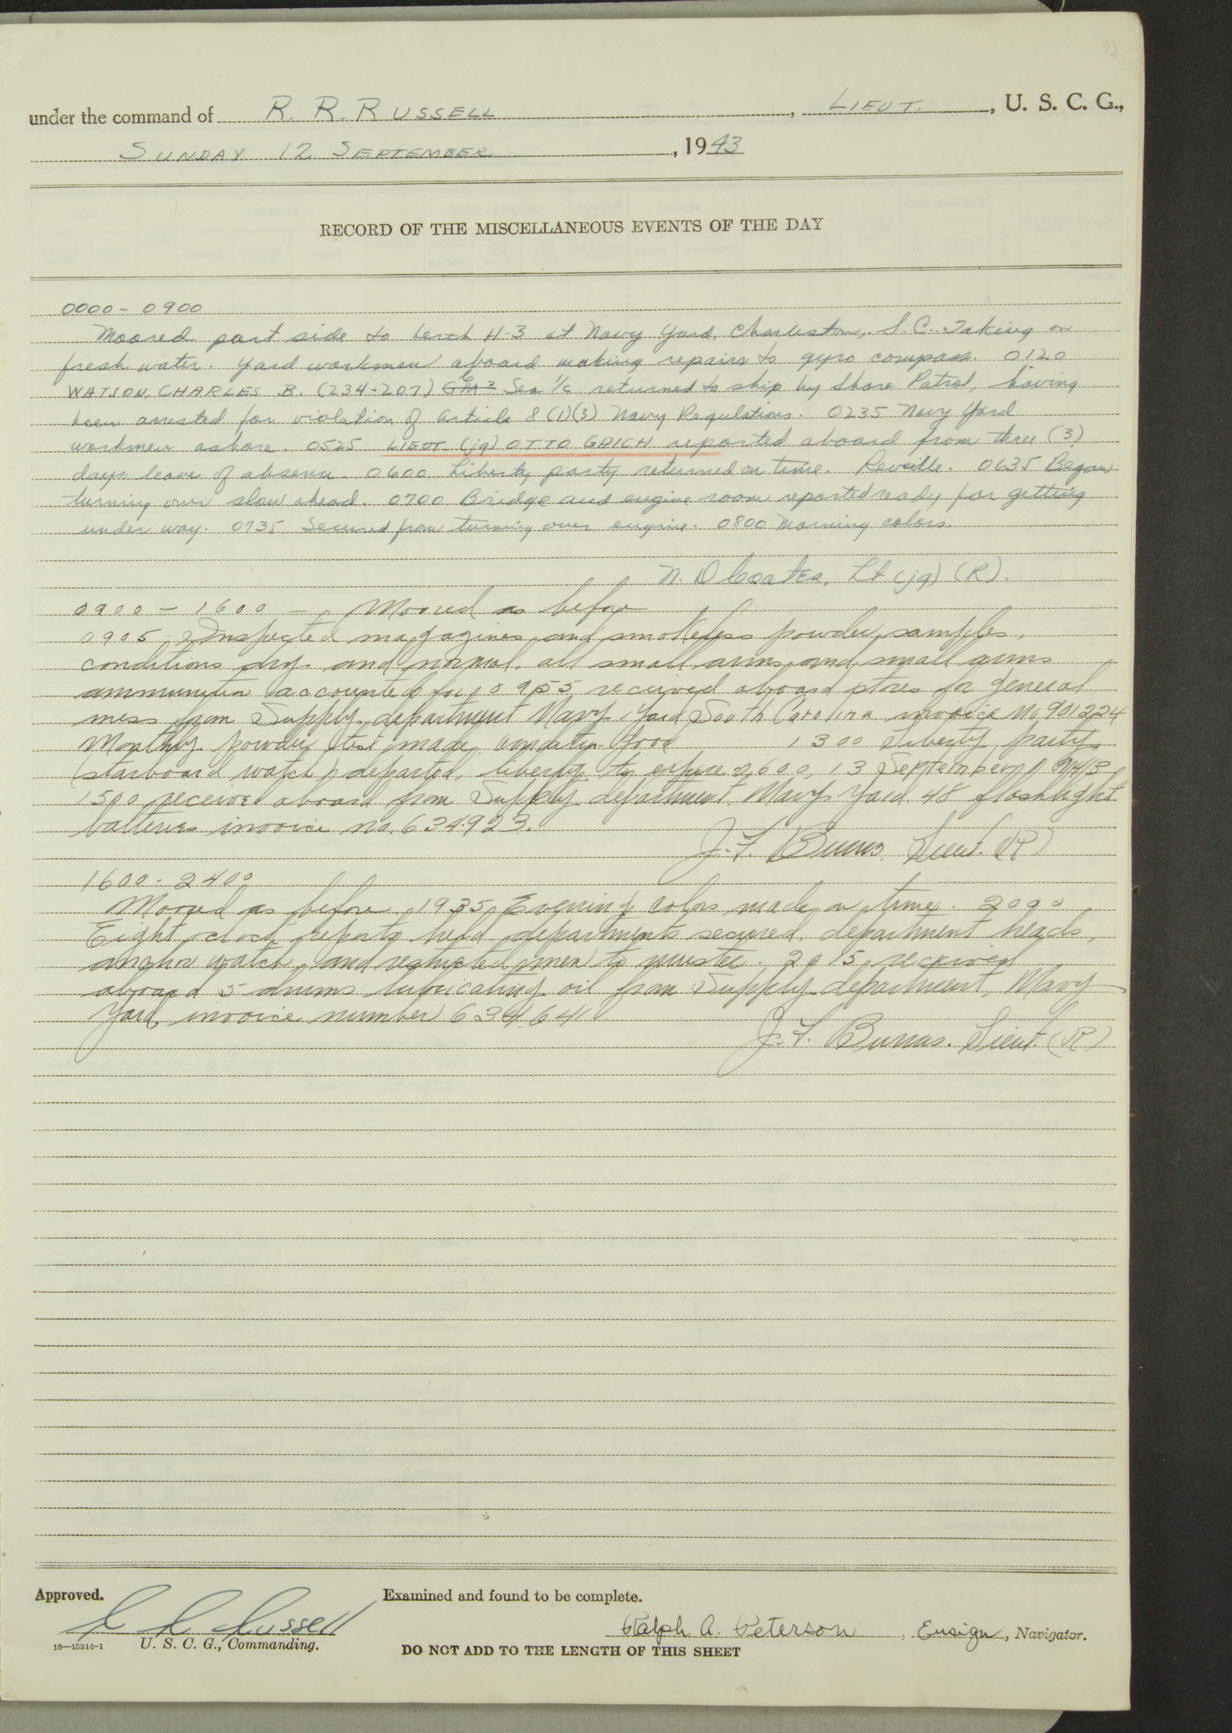 under the command of R. R. RUSSELL, LIEUT., U. S. C. G.,
SUNDAY 12 SEPTEMBER, 1943
RECORD OF THE MISCELLANEOUS EVENTS OF THE DAY
0000-0900
Moored port side to berth H-3 at Navy Yard, Charleston, S.C. Taking on
fresh water. Yard workmen aboard making repairs to gyro compass. 0120
WATSON, CHARLES B. (234-207) Sea 1/c returned to ship by Shore Patrol, having
been arrested for violation of article 8 (1)(3) Navy Regulations. 0235 Navy Yard
workmen ashore. 0525 LIEUT. (jg) OTTO GRICH reported aboard from three (3)
days leave of absence. 0600 Liberty party returned on time. Reveille. 0635 Began
turning over slow ahead. 0700 Bridge and engine room reported ready for getting
under way. 0735 Secured from turning over engine. 0800 Morning colors.
N. D Coates, Lt (jg) (R).
0900 - 1600 - Moored as before
0905 Inspected magazines and smokeless powder samples,
conditions dry and normal. all small arms and small arms
ammunition accounted for, 0955 received aboard stores for general
mess from Supply department Navy Yard South Carolina invoice No 901224
Monthly powder test made, condition good 1300 Liberty party
(starboard watch) departed, liberty to expire 0600, 13 September 1943
1500 receive aboard from Supply department Navy Yard 48 flashlight
batteries invoice no. 634923.
J. F. Burns. Lieut. (R)
1600-2400
Moored as before. 1935 Evening colors made on time. 2000
Eight oclock reports held departments secured, department heads,
anchor watch, and restricted men to muster. 2015 received
aboard 5 drums lubricating oil from Supply department, Navy
Yard, invoice number 634641
J. F. Burns. Lieut. (R)
Approved. Examined and found to be complete.
R R Russell Ralph A. Peterson, Ensign, Navigator.
16—13314-1 U. S. C. G., Commanding.
DO NOT ADD TO THE LENGTH OF THIS SHEET